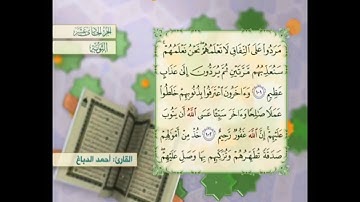 الجزء الحادي عشر
التوبة
مَرَدُوا۟ عَلَى ٱلنِّفَاقِ لَا تَعْلَمُهُمْ نَحْنُ نَعْلَمُهُمْ
سَنُعَذِّبُهُم مَّرَّتَيْنِ ثُمَّ يُرَدُّونَ إِلَىٰ عَذَابٍ
عَظِيمٍ ١٠١ وَءَاخَرُونَ ٱعْتَرَفُوا۟ بِذُنُوبِهِمْ خَلَطُوا۟
عَمَلًا صَـٰلِحًا وَءَاخَرَ سَيِّئًا عَسَى ٱللَّهُ أَن يَتُوبَ
عَلَيْهِمْ إِنَّ ٱللَّهَ غَفُورٌ رَّحِيمٌ ١٠٢ خُذْ مِنْ أَمْوَٰلِهِمْ
صَدَقَةً تُطَهِّرُهُمْ وَتُزَكِّيهِم بِهَا وَصَلِّ عَلَيْهِمْ
القارئ: أحمد الدباغ